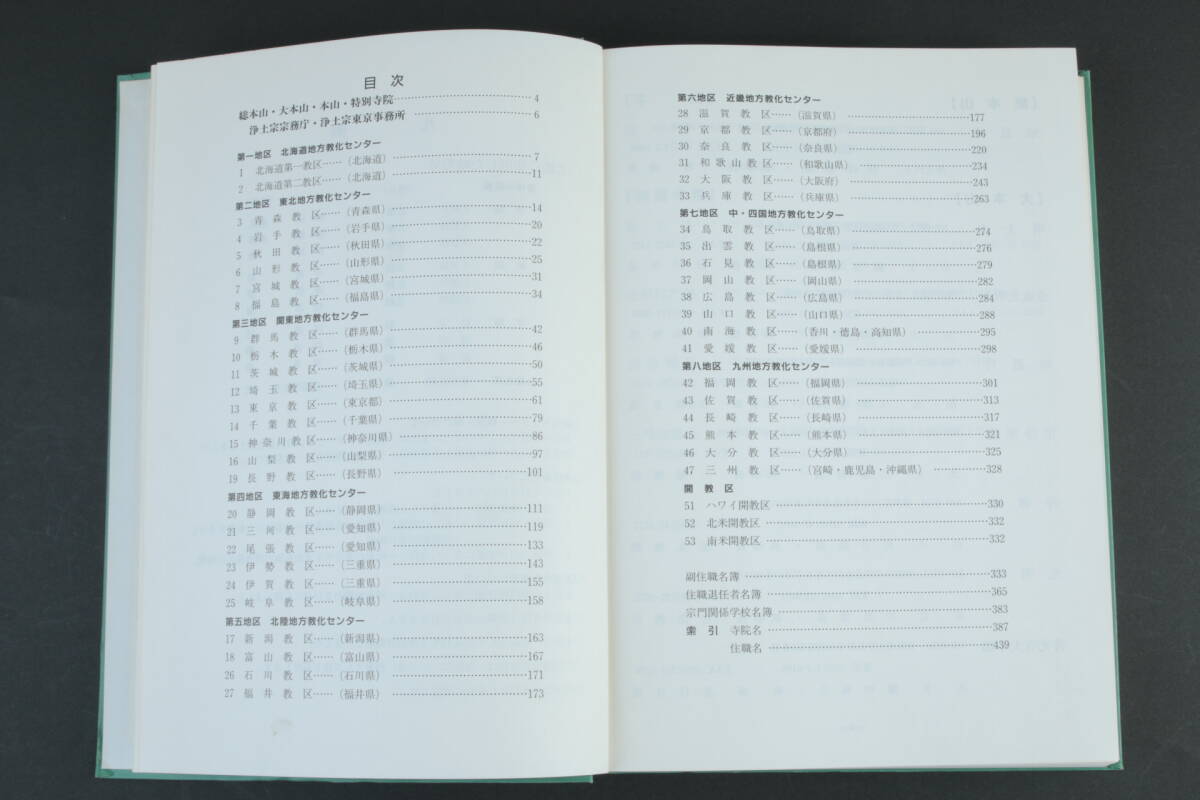 目次
総本山・大本山・本山・特別寺院……4
浄土宗宗務庁・浄土宗東京事務所……6
第一地区 北海道地方教化センター
1 北海道第一教区……(北海道)……7
2 北海道第二教区……(北海道)……11
第二地区 東北地方教化センター
3 青森教区……(青森県)……14
4 岩手教区……(岩手県)……20
5 秋田教区……(秋田県)……22
6 山形教区……(山形県)……25
7 宮城教区……(宮城県)……31
8 福島教区……(福島県)……34
第三地区 関東地方教化センター
9 群馬教区……(群馬県)……42
10 栃木教区……(栃木県)……46
11 茨城教区……(茨城県)……50
12 埼玉教区……(埼玉県)……55
13 東京教区……(東京都)……61
14 千葉教区……(千葉県)……79
15 神奈川教区……(神奈川県)……86
16 山梨教区……(山梨県)……97
19 長野教区……(長野県)……101
第四地区 東海地方教化センター
20 静岡教区……(静岡県)……111
21 三河教区……(愛知県)……119
22 尾張教区……(愛知県)……133
23 伊勢教区……(三重県)……143
24 伊賀教区……(三重県)……155
25 岐阜教区……(岐阜県)……158
第五地区 北陸地方教化センター
17 新潟教区……(新潟県)……163
18 富山教区……(富山県)……167
26 石川教区……(石川県)……171
27 福井教区……(福井県)……173
第六地区 近畿地方教化センター
28 滋賀教区……(滋賀県)……177
29 京都教区……(京都府)……196
30 奈良教区……(奈良県)……220
31 和歌山教区……(和歌山県)……234
32 大阪教区……(大阪府)……243
33 兵庫教区……(兵庫県)……263
第七地区 中・四国地方教化センター
34 鳥取教区……(鳥取県)……274
35 出雲教区……(島根県)……276
36 石見教区……(島根県)……279
37 岡山教区……(岡山県)……282
38 広島教区……(広島県)……284
39 山口教区……(山口県)……288
40 南海教区……(香川・徳島・高知県)……295
41 愛媛教区……(愛媛県)……298
第八地区 九州地方教化センター
42 福岡教区……(福岡県)……301
43 佐賀教区……(佐賀県)……313
44 長崎教区……(長崎県)……317
45 熊本教区……(熊本県)……321
46 大分教区……(大分県)……325
47 三州教区……(宮崎・鹿児島・沖縄県)……328
開教区
51 ハワイ開教区……330
52 北米開教区……332
53 南米開教区……332
副住職名簿……333
住職退任者名簿……365
宗門関係学校名簿……383
索引 寺院名……387
住職名……439